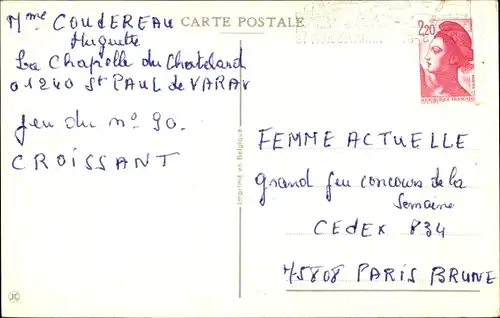 CARTE POSTALE
Mme COUDEREAU
Huguette
La Chapelle du Chatelard
01240 St PAUL de VARAX
Jeu du no 90.
CROISSANT
Imprimé en Belgique
2,20
REPUBLIQUE FRANÇAISE
FEMME ACTUELLE
Grand Jeu concours de la
Semaine
CEDEX 834
75808 PARIS BRUNE
JC